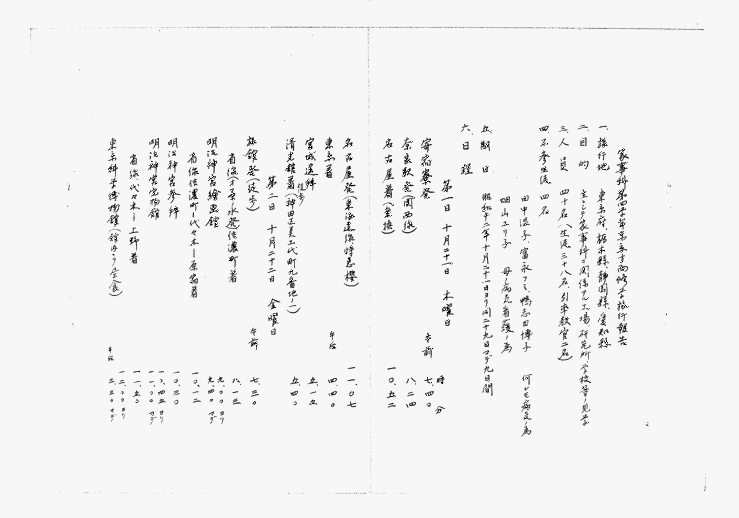 家事科第四学年東京方面修学旅行報告
一、旅行地 東京府、栃木縣、静岡縣、愛知縣
二、目的 主トシテ家事科ニ関係アル工場、研究所、学校等ノ見学
三、人員 四十名(生徒三十八名、引率教官二名)
四、不参生徒 四名
田中温子、富永フミ、鴨志田博子 何レモ病気ノ為
畑山ユリ子 母ノ病気看護ノ為
五、期日 昭和十二年十月二十一日ヨリ同二十九日マデ九日間
六、日程
第一日 十月二十一日 木曜日
時 分
寄宿寮発 午前 七、四〇
奈良駅発(関西線) 八、二四
名古屋着(乗換) 一〇、五二
名古屋発(東海道線特急) 一一、〇七
東京着 午後 四、四〇
宮城遥拝 五、一五
清光館着(神田区美土代町九番地ノ一) 徒歩 五、四〇
第二日 十月二十二日 金曜日
旅館発(徒歩) 午前 七、三〇
省線(才茶ノ水発)信濃町着 八、一三
明治神宮絵画館 九、〇〇ヨリ 九、四〇マデ
省線信濃町―代々木―原宿着 一〇、一二
明治神宮参拝 一〇、三〇
明治神宮宝物館 一〇、四五ヨリ 一一、〇〇マデ
省線代々木―上野着 一一、五〇
東京科学博物館(館内ニテ昼食) 一二、〇〇ヨリ 午後 二、三〇マデ